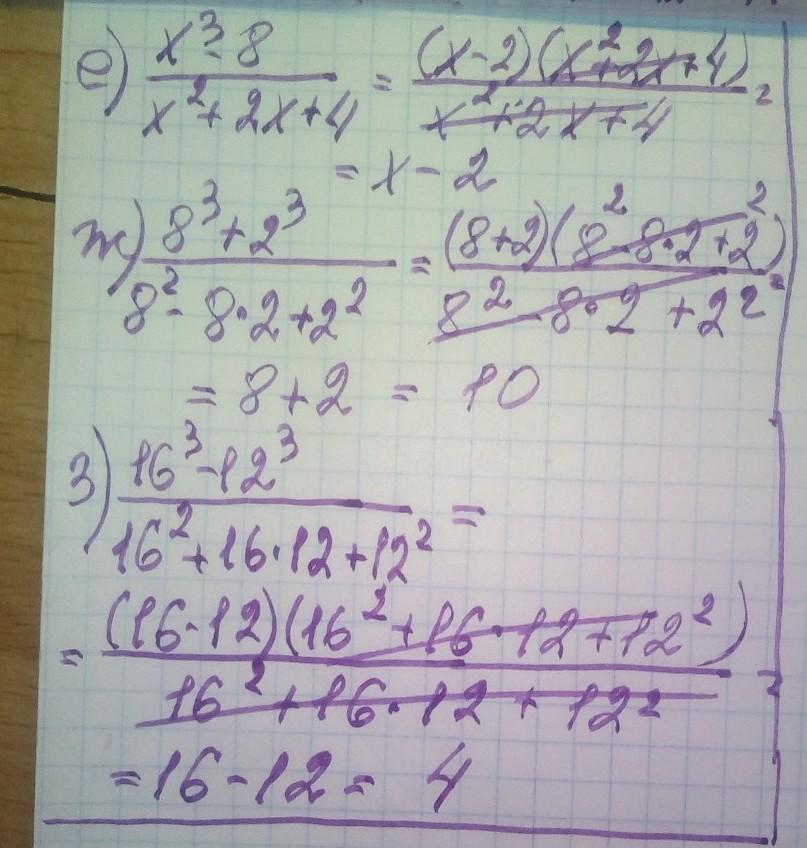 е) x³-8 / x²+2x+4 = (x-2)(x²+2x+4) / x²+2x+4 =
= x-2
ж) 8³+2³ / 8²-8·2+2² = (8+2)(8²-8·2+2²) / 8²-8·2+2² =
= 8+2 = 10
з) 16³-12³ / 16²+16·12+12² =
= (16-12)(16²+16·12+12²) / 16²+16·12+12² =
= 16-12 = 4